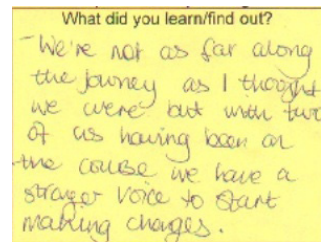 What did you learn/find out?
- We're not as far along
the journey as I thought
we were but with two
of us having been on
the course we have a
stronger voice to start
making changes.